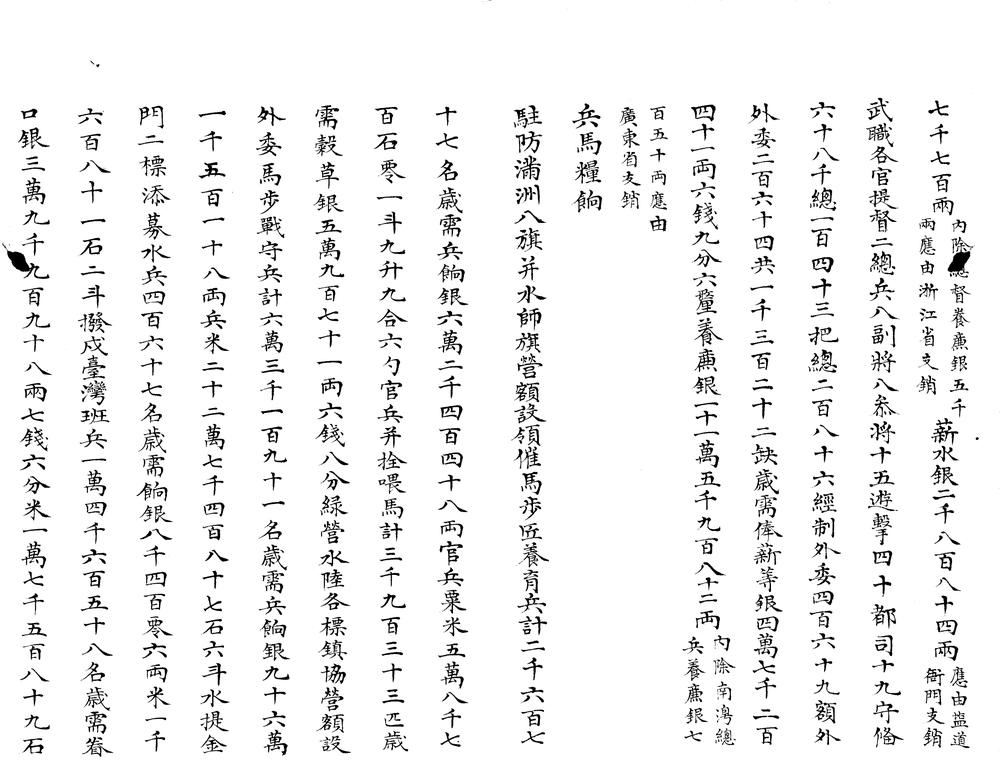 七千七百兩內除總督養廉銀五千兩應由浙江省支銷薪水銀二千八百八十四兩應由盐道衙門支銷
武職各官提督二總兵八副將八叅將十五遊擊四十都司十九守俻
六十八千總一百四十三把總二百八十六經制外委四百六十九額外
外委二百六十四共一千三百二十二缺歲需俸薪等銀四萬七千二百
四十一両六錢九分六釐養廉銀一十一萬五千九百八十二両內除南澚總兵養廉銀七
百五十両應由廣東省支銷
兵馬糧餉
駐防滿洲八旗并水師旗營額設領催馬步匠養育兵計二千六百七
十七名歲需兵餉銀六萬二千四百四十八両官兵粟米五萬八千七
百石零一斗九升九合六勺官兵并拴喂馬計三千九百三十三匹歲
需穀草銀五萬九百七十一両六錢八分綠營水陸各標鎮協營額設
外委馬步戰守兵計六萬三千一百九十一名歲需兵餉銀九十六萬
一千五百一十八両兵米二十二萬七千四百八十七石六斗水提金
門二標添募水兵四百六十七名歲需餉銀八千四百零六両米一千
六百八十一石二斗撥戍臺灣班兵一萬四千六百五十八名歲需眷
口銀三萬九千九百九十八兩七錢六分米一萬七千五百八十九石